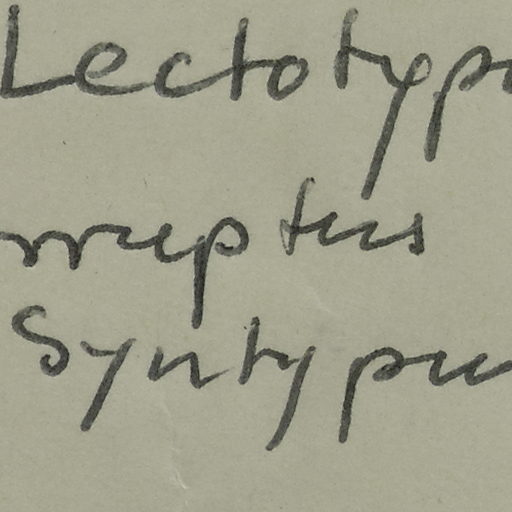 Lectotypu
rruptus
Syntypu